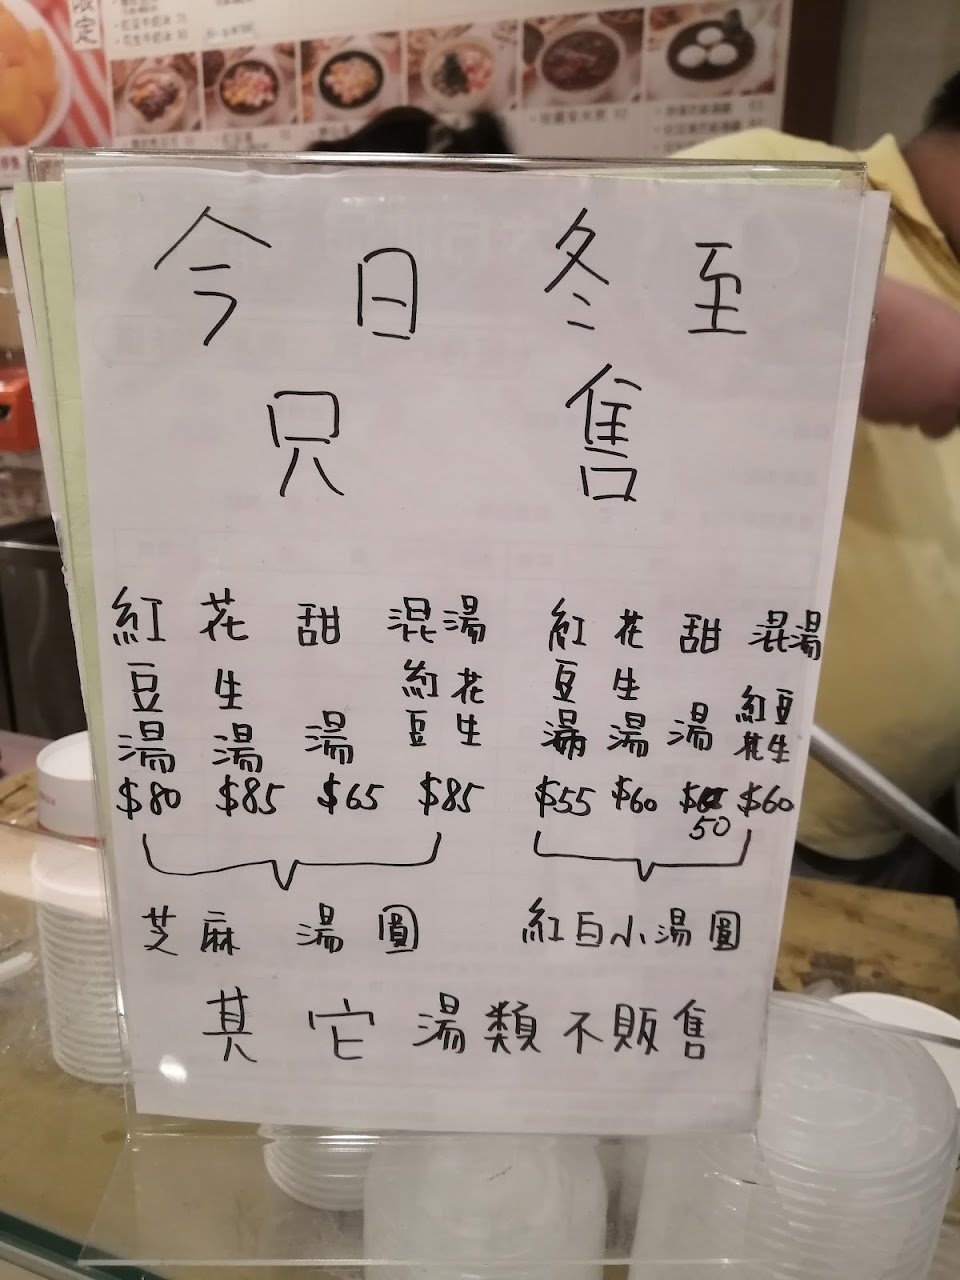 限定
今日冬至
只售
紅豆湯 $80
花生湯 $85
甜湯 $65
混湯 紅豆 花生 $85
芝麻湯圓
紅豆湯 $55
花生湯 $60
甜湯 $50
混湯 紅豆 花生 $60
紅白小湯圓
其它湯類不販售